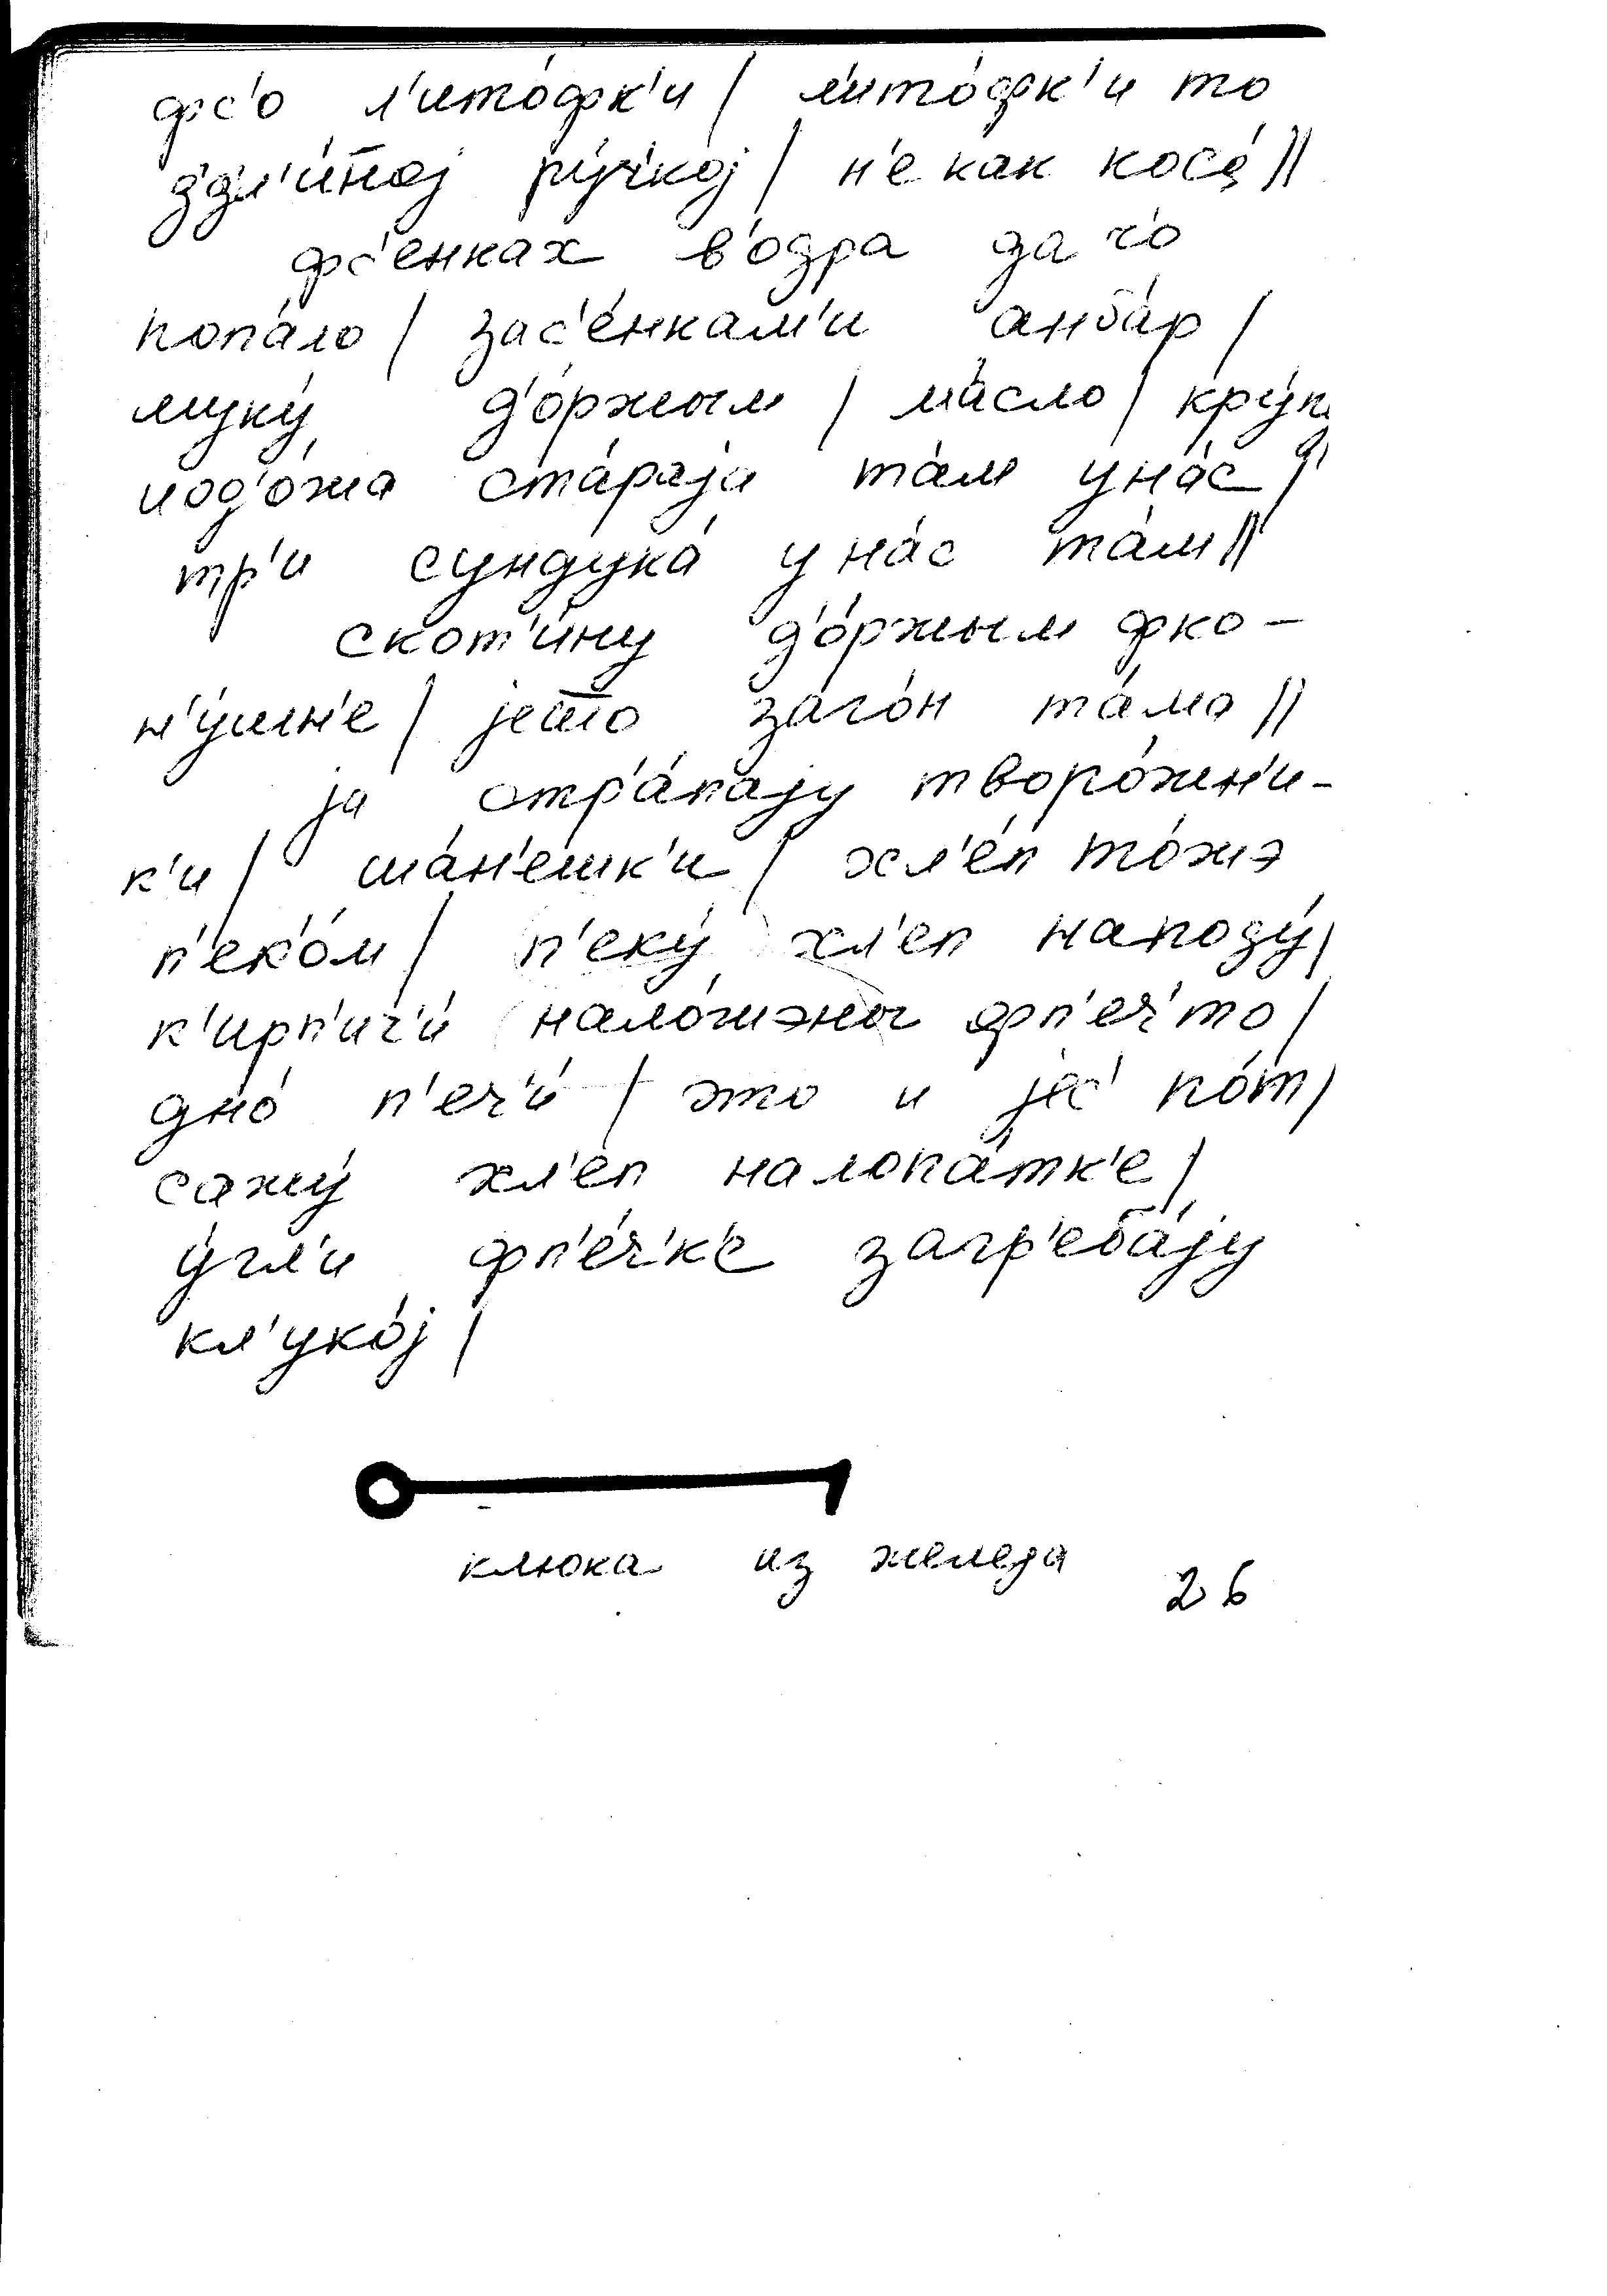 фс'о л'ито́фк'и / л'ито́фк'и то
з'дл'и́н̅ој ру́ч'кој / н'е как коса́ //
фс'енках в'одра да ч'о
попа́ло / зас'е́нкам'и анба́р /
муку́ д'о́ржым / ма́сло / кру́пы
иод'о́жа ста́раја та́м у на́с /
тр'и сундука́ у на́с та́м //
скот'и́ну д'о́ржым фко-
н'у́шн'е / јешто заго́н та́мо //
ја стр'а́пају творо́жн'и-
к'и / ша́н'ешк'и / хл'е́п то́жэ
п'ек'о́м / п'еку́ хл'еп наподу́ /
к'ирп'ич'и́ нало́жэны фп'еч'то /
дно́ п'еч'и́ / это и јес' по́т /
сажу́ хл'еп налопа́тк'е /
у́гл'и фп'е́ч'к'е загр'еба́ју
кл'уко́ј /
клюка из железа
26